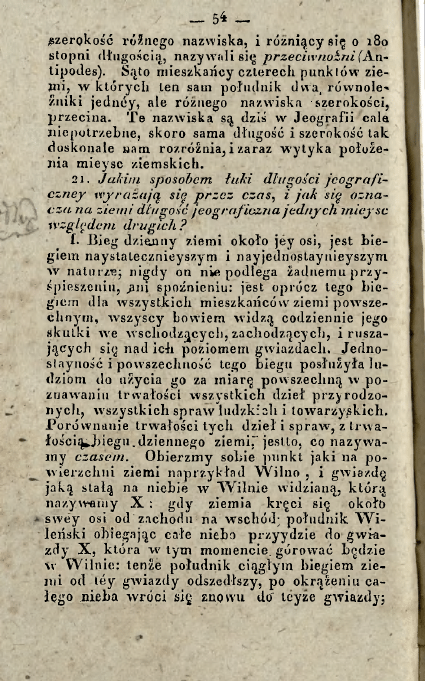 — 54 —
szerokość różnego nazwiska, i różniący się o 180
stopni długością, nazywali się przeciwnoźni (An-
tipodes). Sąto mieszkańcy czterech punktów zie-
mi, w których ten sam południk dwa równole-
żniki jednéy, ale różnego nazwiska szerokości,
przecina. Te nazwiska są dziś w Jeografii cale
niepotrzebne, skoro sama długość i szerokość tak
doskonale nam rozróżnia, i zaraz wytyka położe-
nia mieysc ziemskich.
21. Jakim sposobem łuki długości jeografi-
czney wyrażają się przez czas, i jak się ozna-
cza na ziemi długość jeograficzna jednych mieysc
względem drugich?
1. Bieg dzienny ziemi około jey osi, jest bie-
giem naystatecznieyszym i nayjednostaynieyszym
w naturze; nigdy on nie podlega żadnemu przy-
śpieszeniu, ani spoźnieniu: jest oprócz tego bie-
giem dla wszystkich mieszkańców ziemi powsze-
chnym, wszyscy bowiem widzą codziennie jego
skutki we wschodzących, zachodzących, i rusza-
jących się nad ich poziomem gwiazdach. Jedno-
stayność i powszechność tego biegu posłużyła lu-
dziom do użycia go za miarę powszechną w po-
znawaniu trwałości wszystkich dzieł przyrodzo-
nych, wszystkich spraw ludzkich i towarzyskich.
Porównanie trwałości tych dzieł i spraw, z trwa-
łością biegu dziennego ziemi, jestto, co nazywa-
my czasem. Obierzmy sobie punkt jaki na po-
wierzchni ziemi naprzykład Wilno, i gwiazdę
jaką stałą na niebie w Wilnie widzianą, którą
nazywamy X: gdy ziemia kręci się około
swey osi od zachodu na wschód; południk Wi-
leński obiegając całe niebo przyydzie do gwia-
zdy X, która w tym momencie górować będzie
w Wilnie: tenże południk ciągłym biegiem zie-
mi od téy gwiazdy odszedłszy, po okrążeniu ca-
łego nieba wróci się znowu do téyże gwiazdy;